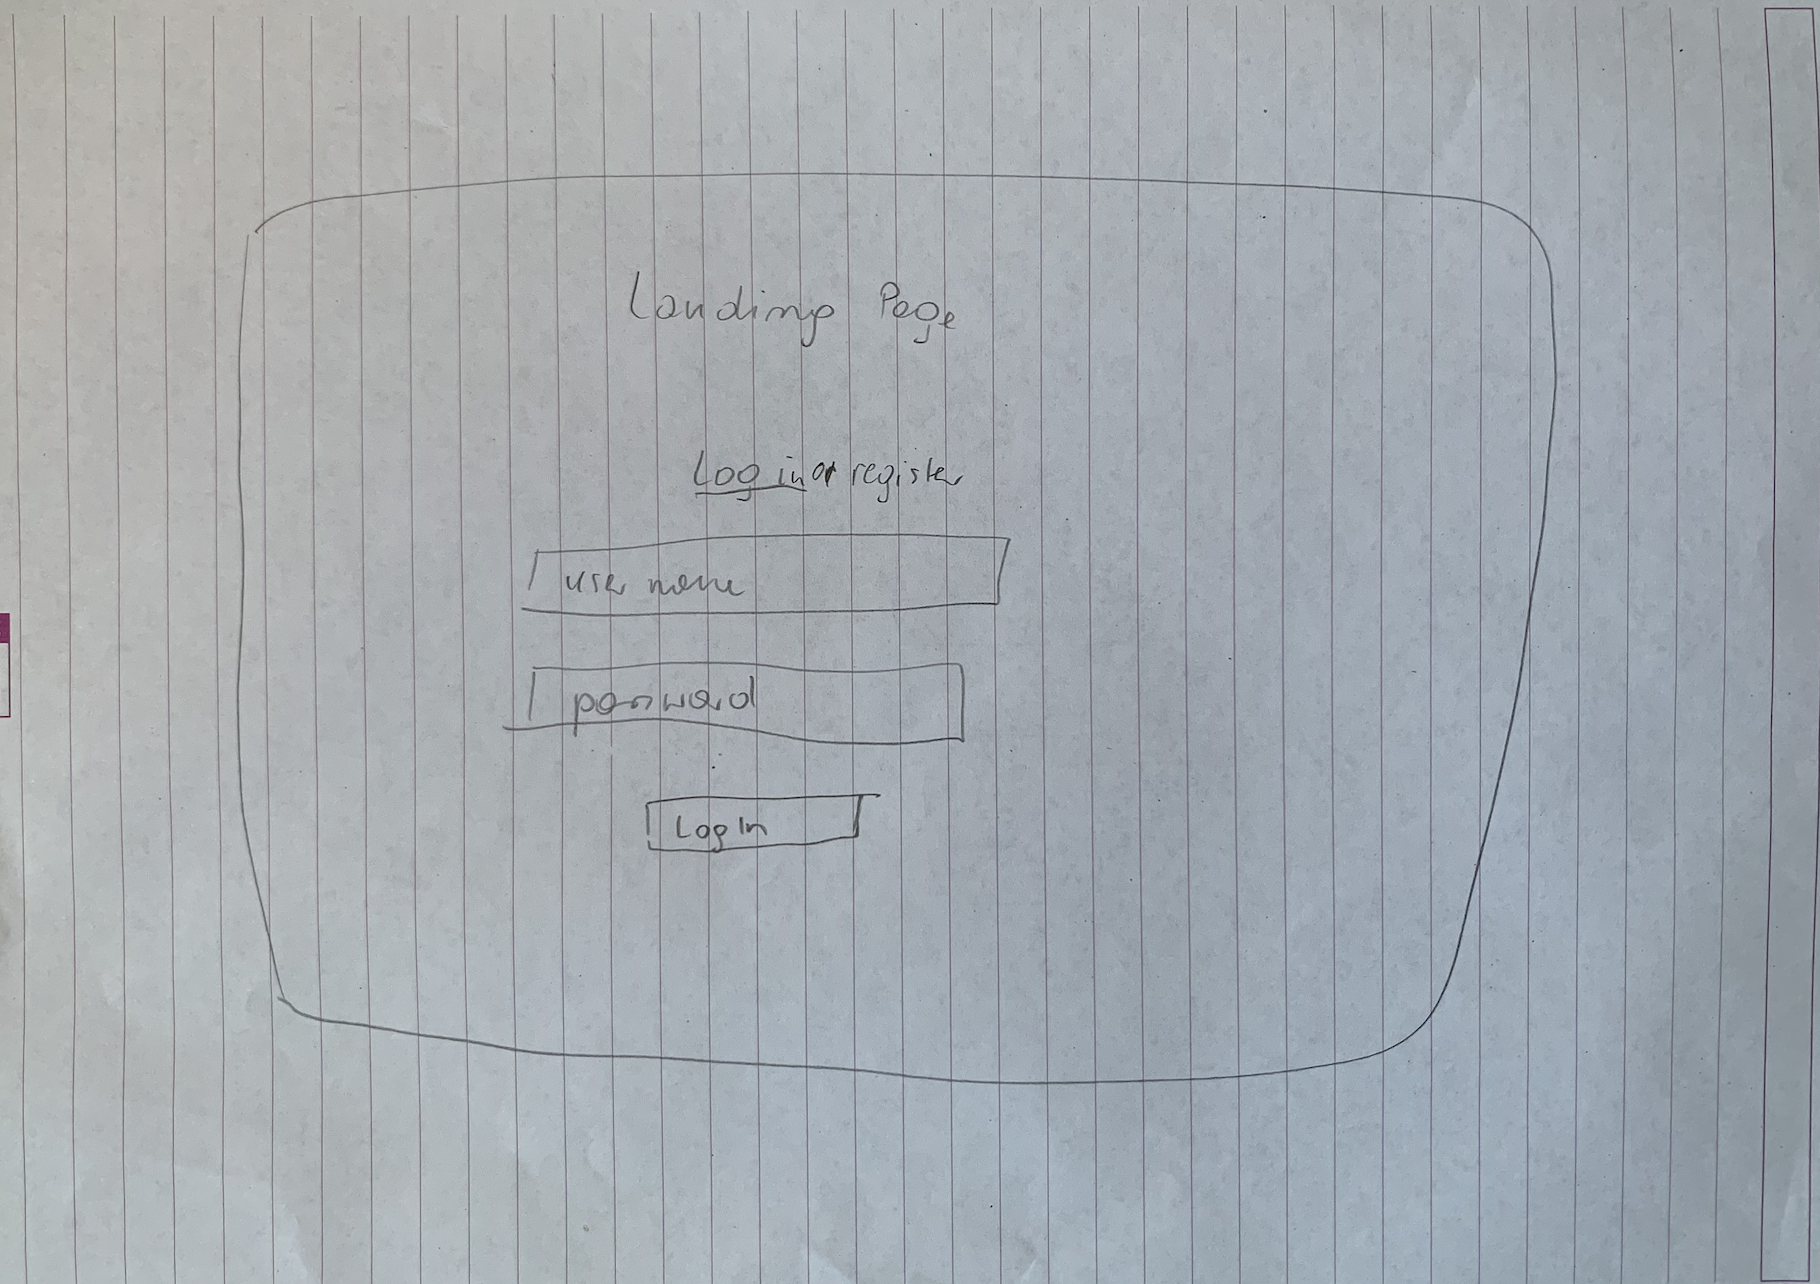 Landing Page
Log in or register
user name
password
Log In